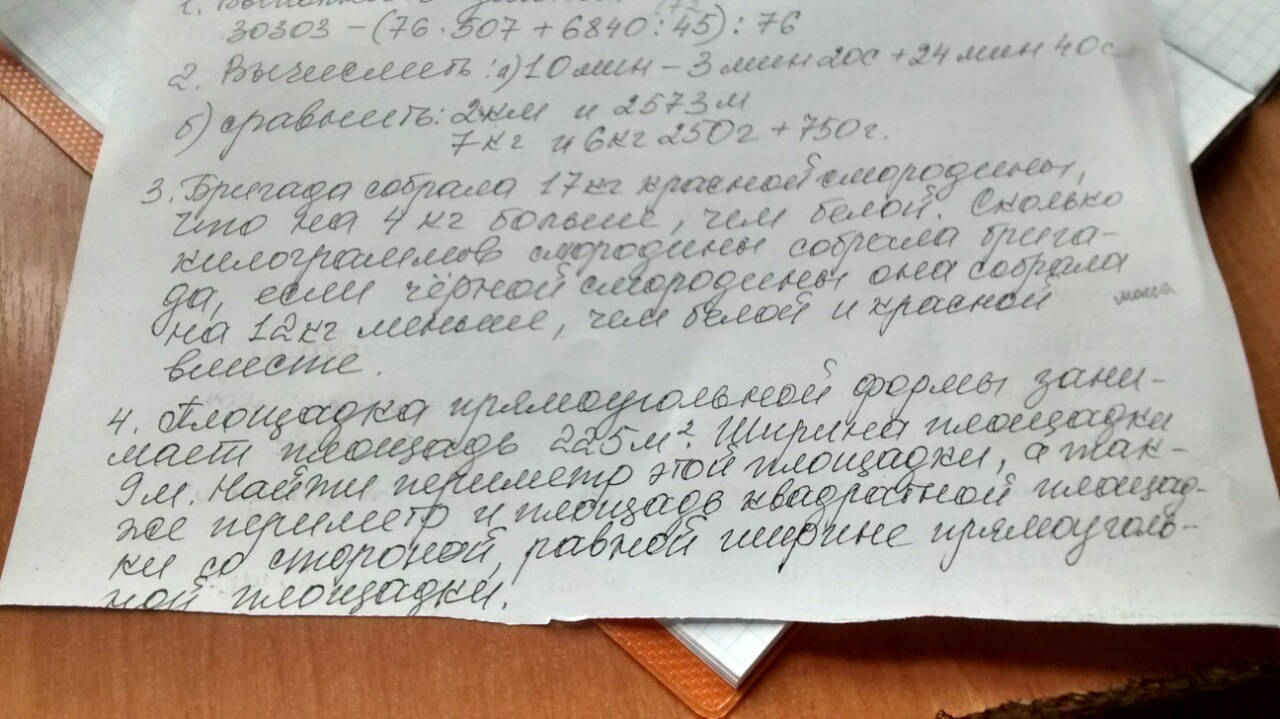 1. Выполнить
30303 - (76 · 507 + 6840 : 45) : 76
2. Вычислить: а) 10 мин - 3 мин 20с + 24 мин 40с
б) сравнить: 2км и 2573м
7кг и 6кг 250г + 750г.
3. Бригада собрала 17кг красной смородины,
что на 4 кг больше, чем белой. Сколько
килограммов смородины собрала брига-
да, если чёрной смородины она собрала
на 12кг меньше, чем белой и красной
масса
вместе.
4. Площадка прямоугольной формы зани-
мает площадь 225м². Ширина площадки
9м. Найти периметр этой площадки, а так-
же периметр и площадь квадратной площад-
ки со стороной, равной ширине прямоуголь-
ной площадки.